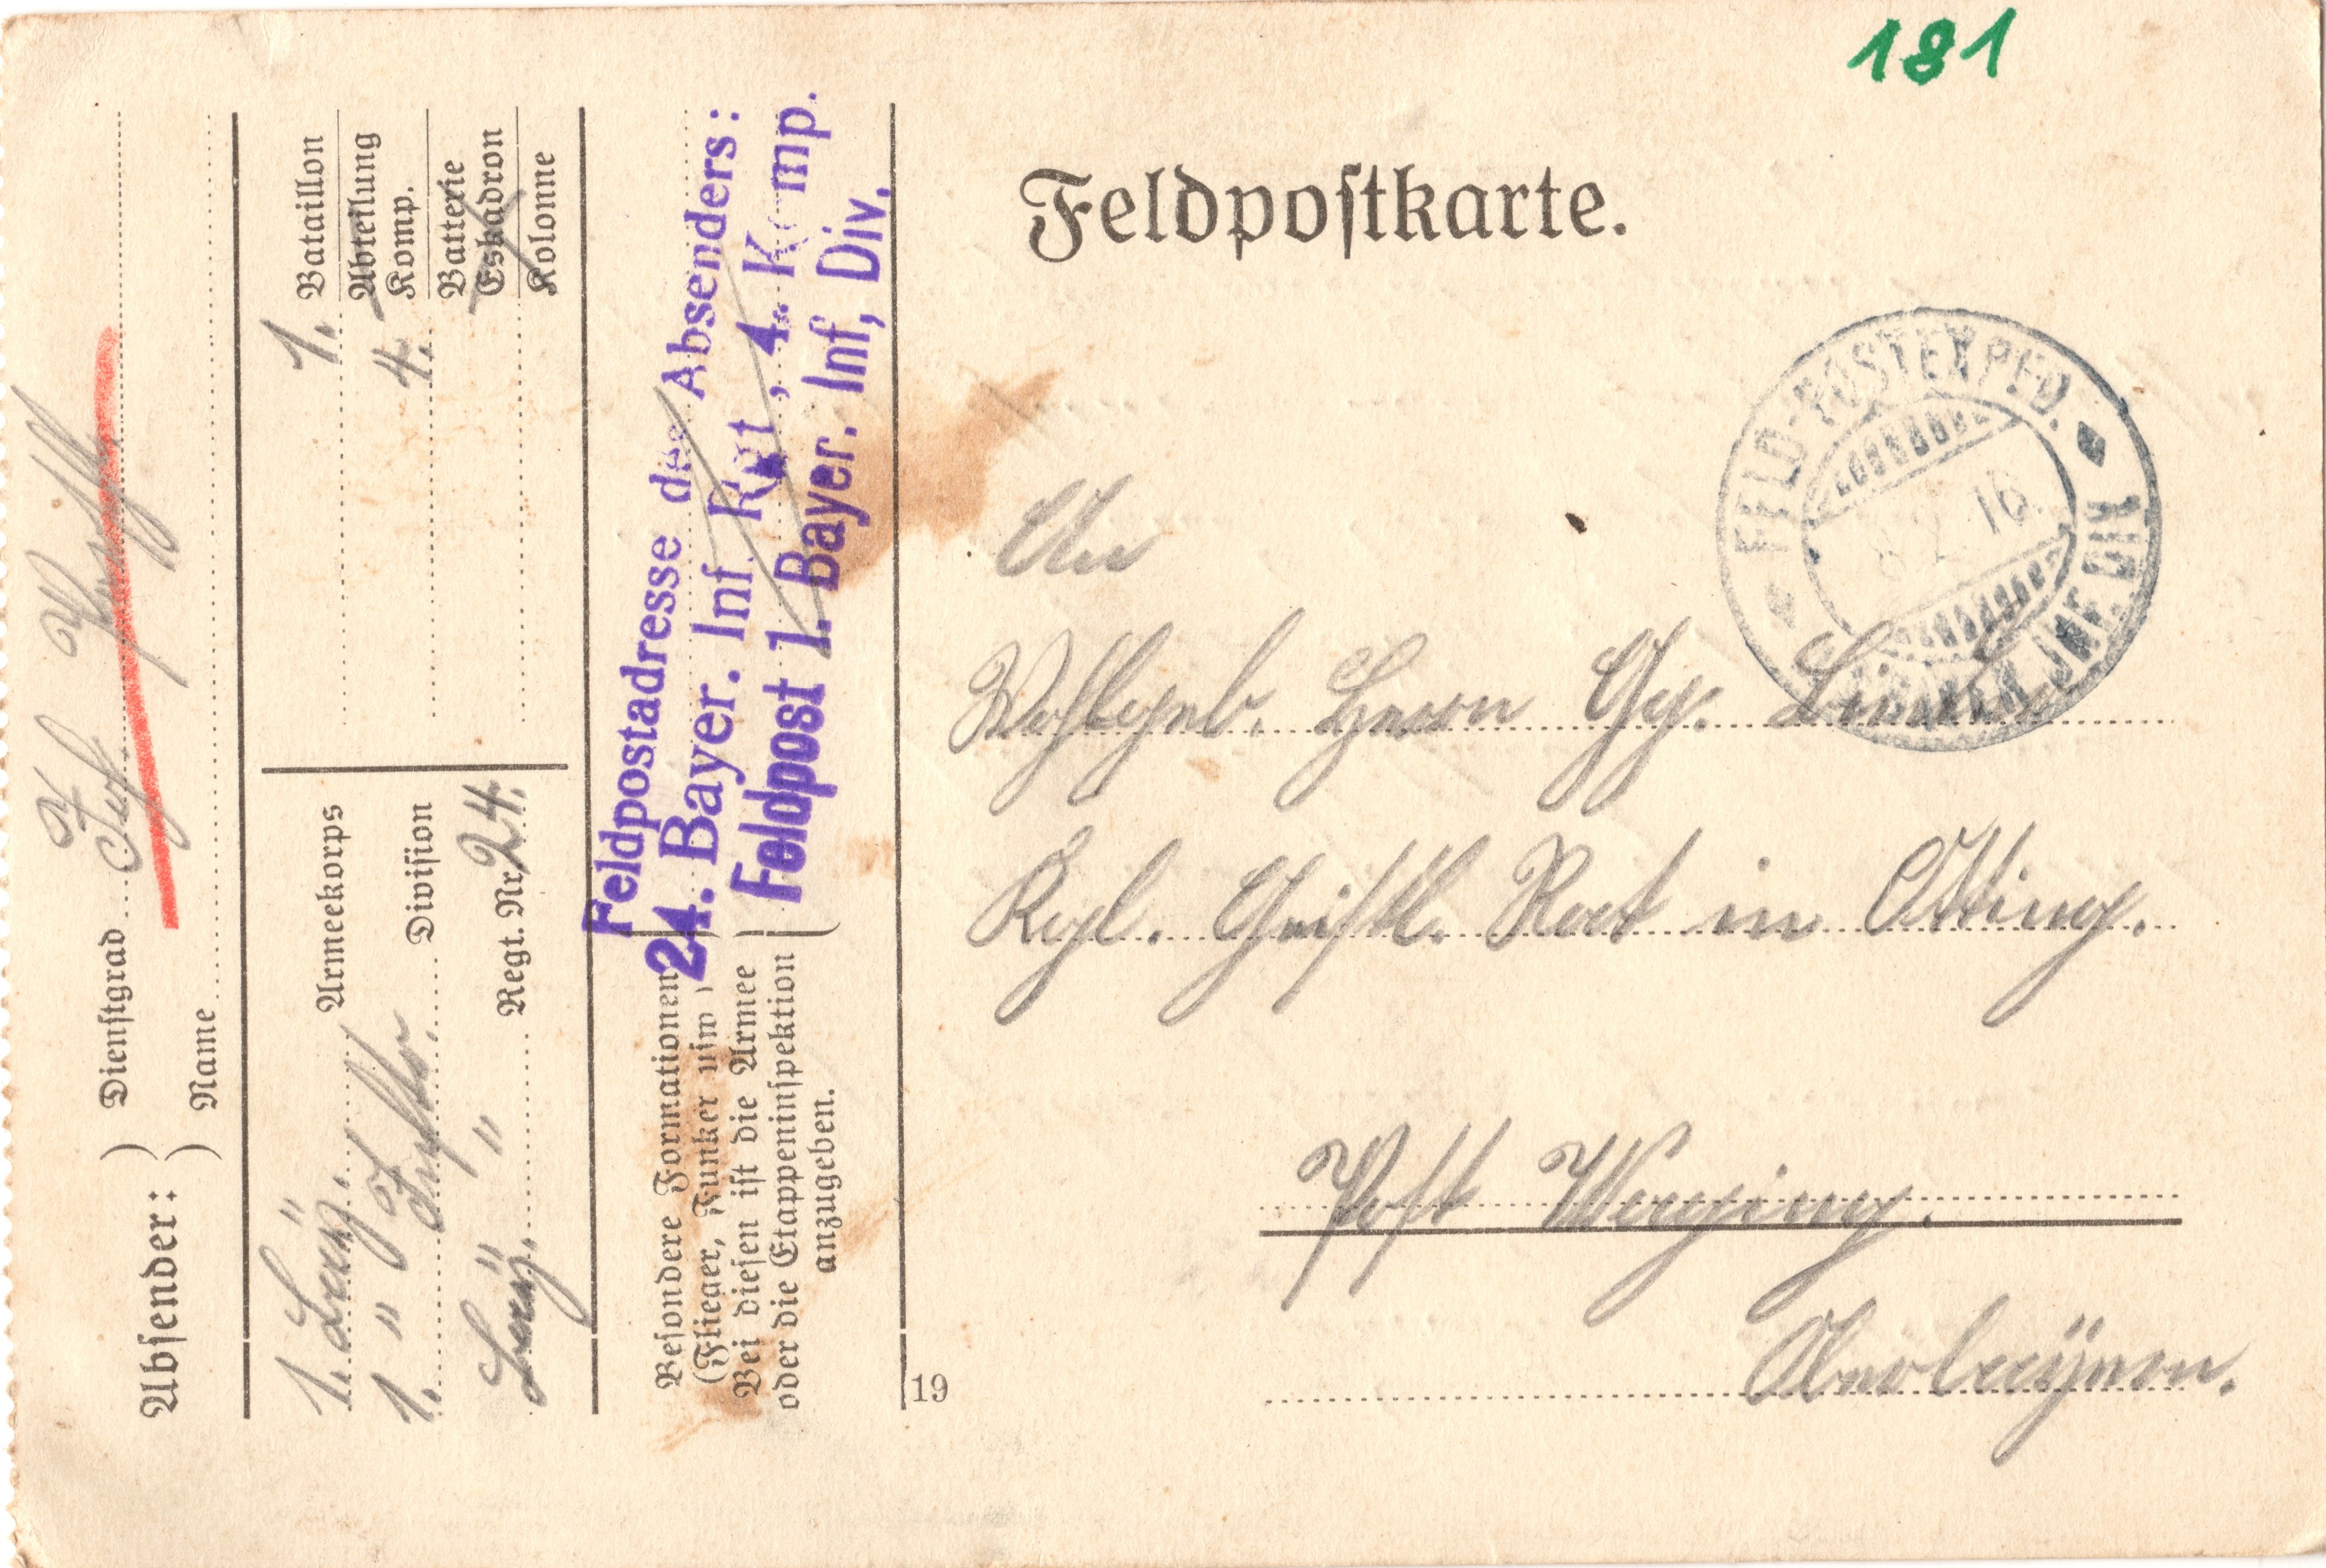 181
Feldpostkarte.
FELD-POSTEXPED.
8 2 16.
INF. DIV.
An
Wohlgeb. Herrn Gg.
Kgl. Geistl. Rat in Otting.
Post Waging.
Oberbayern.
19
Absender:
Dienstgrad
Name
Inf.
1. Bataillon
Abteilung
4. Komp.
Batterie
Eskadron
Kolonne
1. bayr. Armeekorps
1. " Inftr. Division
bayr. " Regt. Nr. 24.
Besondere Formationen
(Flieger, Funker usw.)
Bei diesen ist die Armee
oder die Etappeninspektion
anzugeben.
Feldpostadresse des Absenders:
24. Bayer. Inf. Rgt., 4. Komp.
Feldpost 1. Bayer. Inf. Div.